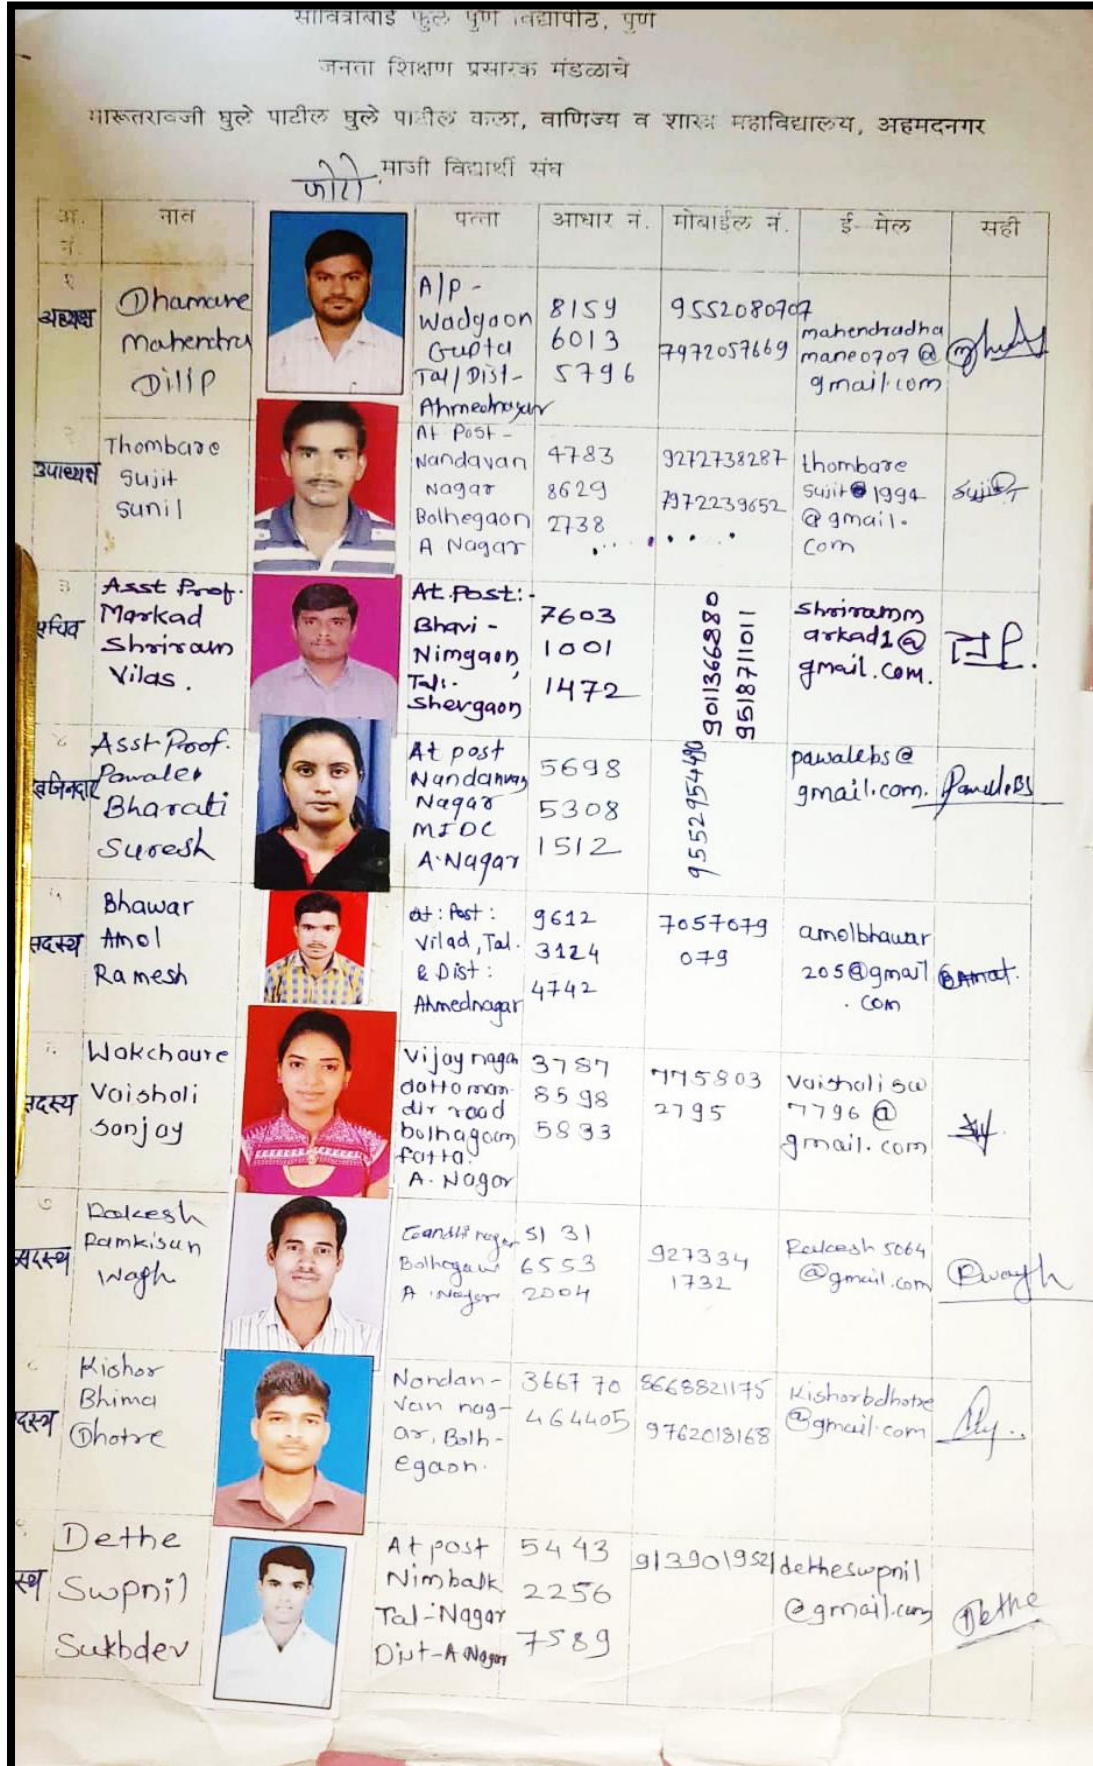 सावित्रीबाई फुले पुणे विद्यापीठ, पुणे
जनता शिक्षण प्रसारक मंडळाचे
मारूतरावजी घुले पाटील घुले पाटील कला, वाणिज्य व शास्त्र महाविद्यालय, अहमदनगर
माजी विद्यार्थी संघ
फोटो
अ. नं.
नाव
पत्ता
आधार नं.
मोबाईल नं.
ई- मेल
सही
१
अध्यक्ष
Dhamane
Mahendra
Dilip
A/p -
Wadgaon
Gupta
Tal/Dist-
Ahmednagar
8159
6013
5796
9552080707
7972057669
mahendradha
mane0707@
gmail.com
२
उपाध्यक्ष
Thombare
Sujit
Sunil
At Post -
Nandavan
Nagar
Bolhegaon
A Nagar
4783
8629
2738
9272738287
7972239652
thombare
sujit@1994
@gmail.
com
Sujit
३
सचिव
Asst Prof.
Markad
Shriram
Vilas.
At.Post:-
Bhavi -
Nimgaon,
Tal:-
Shevgaon
7603
1001
1472
9011366880
9518711011
shriramm
arkad1@
gmail.com.
४
खजिनदार
Asst Prof.
Pawale
Bharati
Suresh
At post
Nandanvan
Nagar
MIDC
A.Nagar
5698
5308
1512
9552954490
pawalebs@
gmail.com.
PawaleBS
५
सदस्य
Bhawar
Amol
Ramesh
at: Post:
Vilad, Tal.
& Dist:
Ahmednagar
9612
3124
4742
7057079
079
amolbhawar
205@gmail
.com
सदस्य
Wakchaure
Vaishali
Sanjay
Vijay nagar
datta man-
dir road
bolhagaon
fatta.
A. Nagar
3787
8598
5833
775803
2795
Vaishalisw
7796@
gmail.com
७
सदस्य
Rakesh
Ramkisan
Wagh
Gandhi nagar
Bolhegaon
A. Nagar
5131
6553
2004
927334
1732
Rakesh5064
@gmail.com
Rwagh
८
सदस्य
Kishor
Bhima
Dhotre
Nandan-
van nag-
ar, Bolh-
egaon.
366770
464405
8668821175
9762018168
Kishorbdhotre
@gmail.com
Dethe
Swpnil
Sukhdev
At post
Nimbalk
Tal-Nagar
Dist-A Nagar
5443
2256
7589
9139019521
detheswpnil
@gmail.com
Dethe